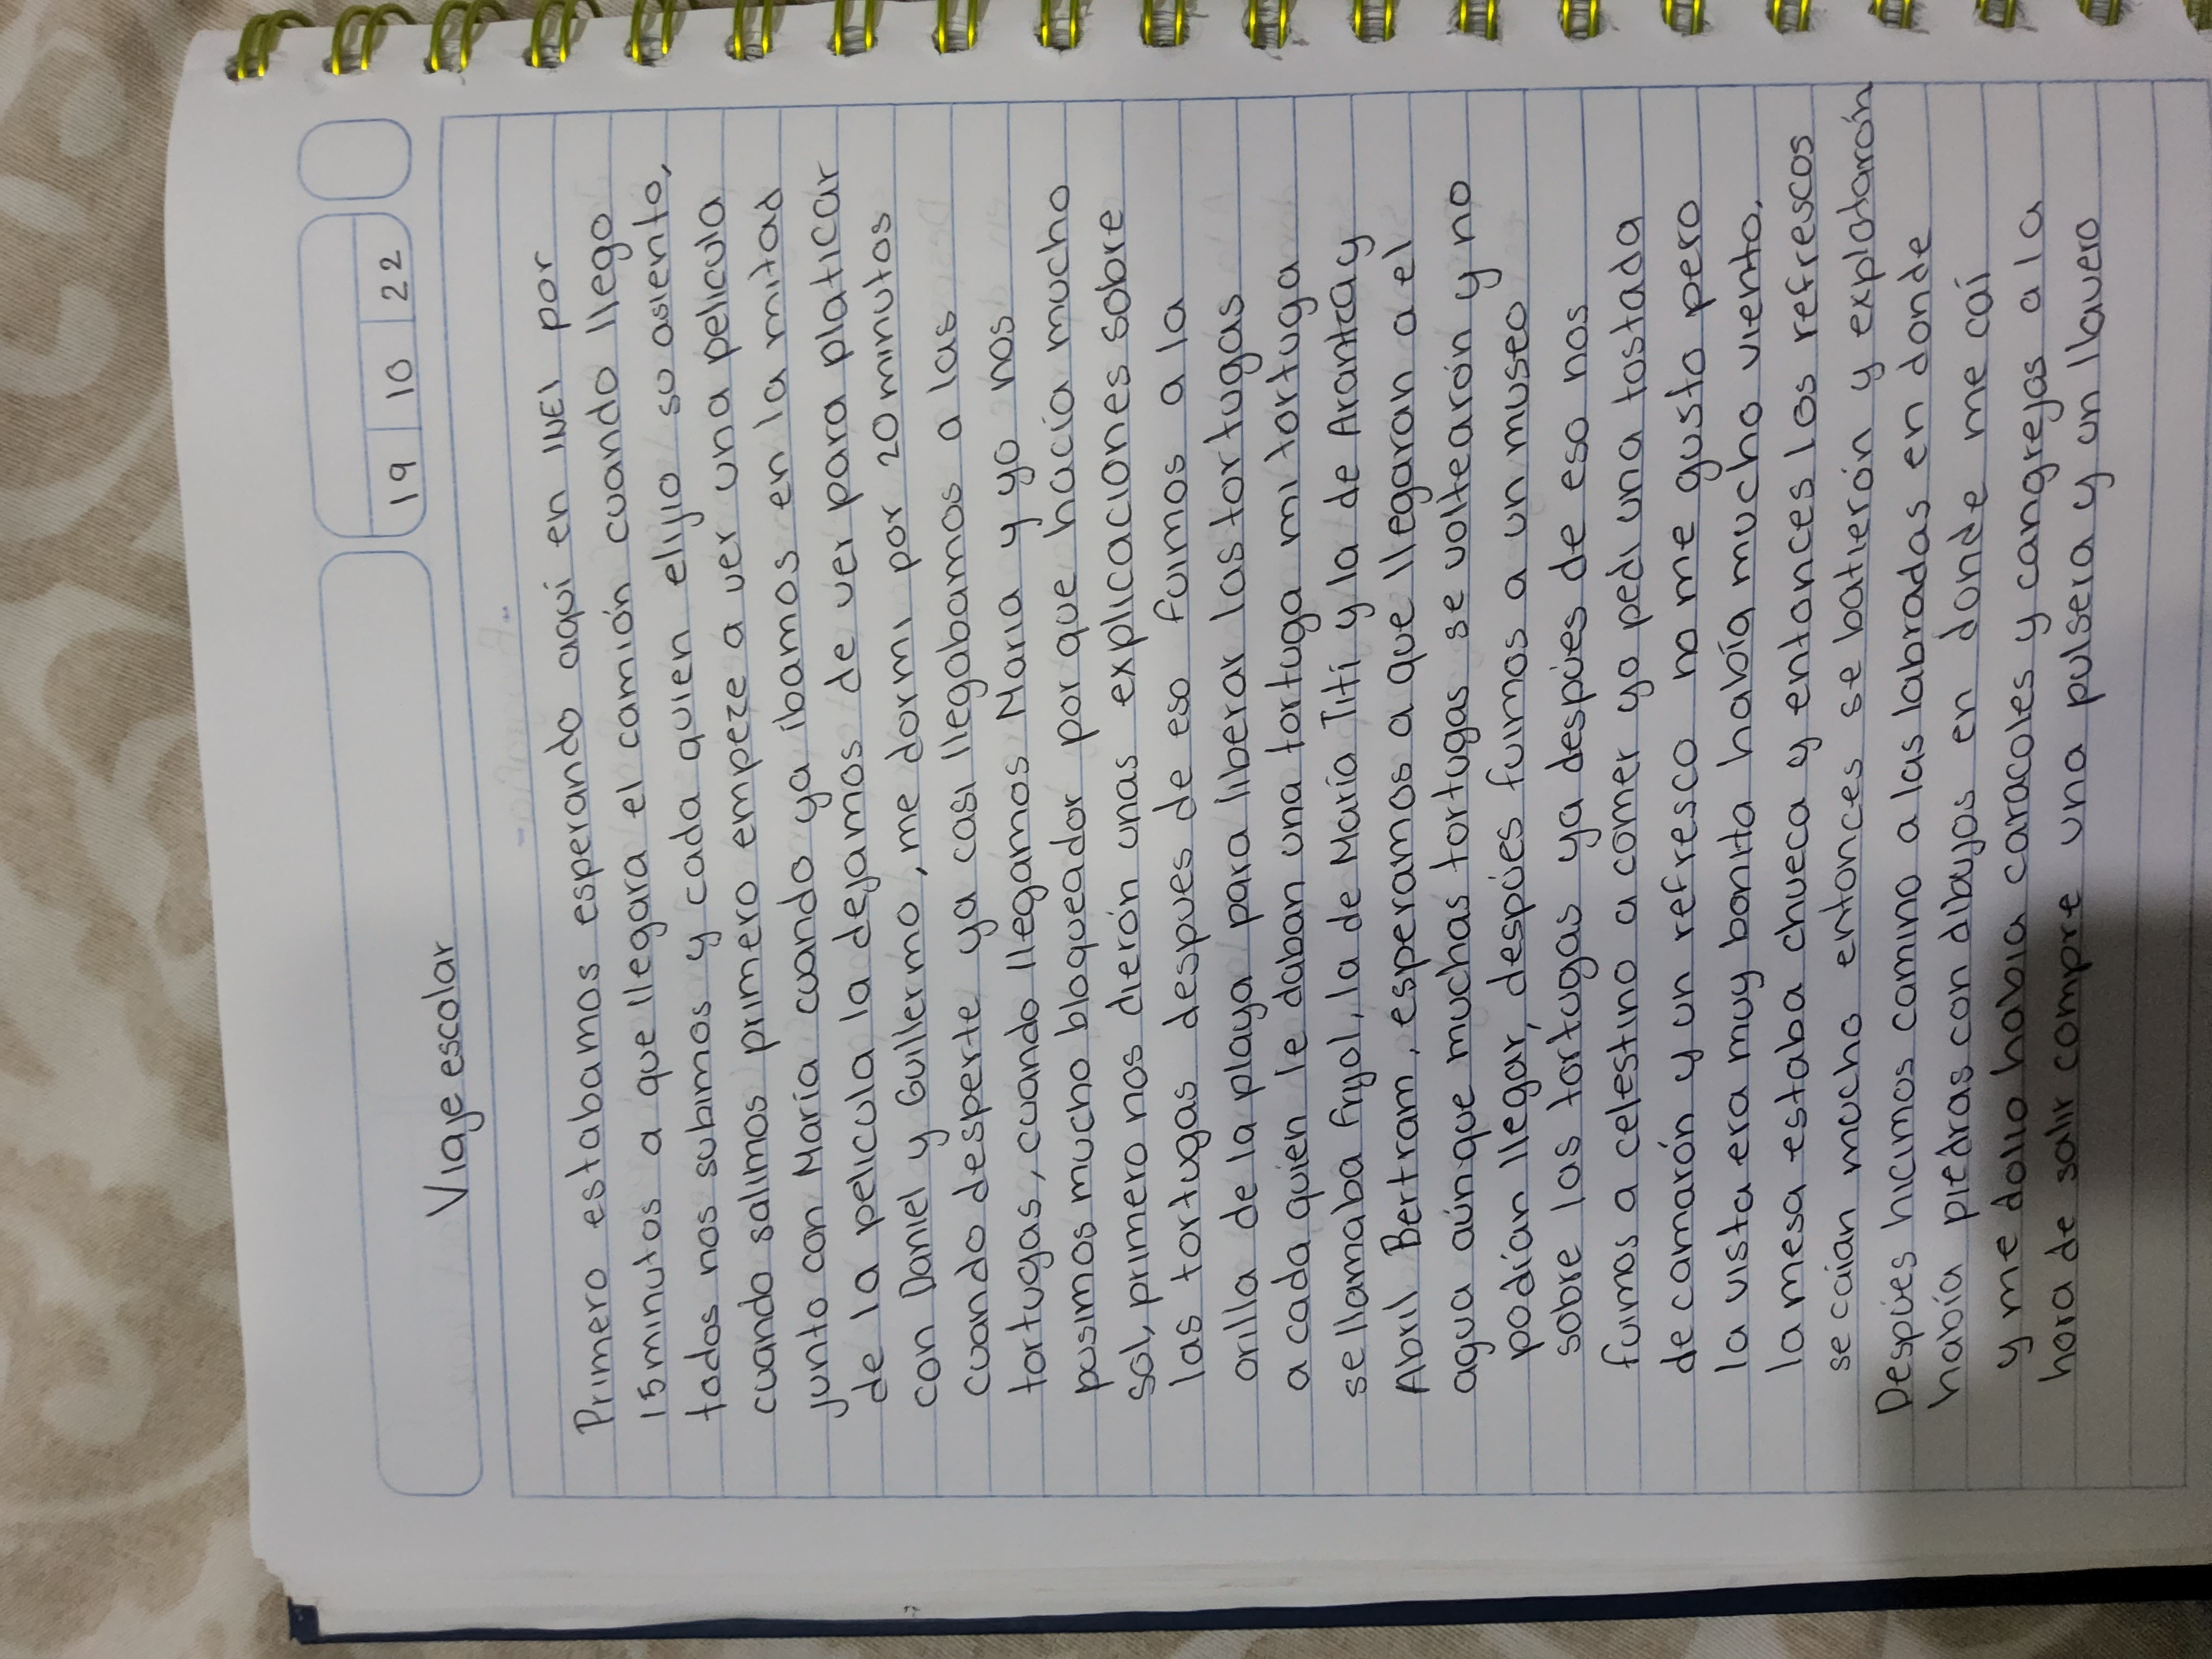 19 10 22
Viaje escolar
Primero estabamos esperando aquí en INEI por
15 minutos a que llegara el camión cuando llego
todos nos subimos y cada quien elijio su asiento,
cuando salimos primero empeze a ver una pelicula
junto con María cuando ya ibamos en la mitad
de la pelicula la dejamos de ver para platicar
con Daniel y Guillermo, me dormi por 20 minutos
cuando desperte ya casi llegabamos a las
tortugas, cuando llegamos Maria y yo nos
pusimos mucho bloqueador por que hacía mucho
sol, primero nos dierón unas explicaciones sobre
las tortugas despues de eso fuimos a la
orilla de la playa para liberar las tortugas
a cada quien le daban una tortuga mi tortuga
se llamaba frijol, la de María Titi y la de Arantza y
Abril Bertram, esperamos a que llegaran a el
agua aúnque muchas tortugas se voltearón y no
podían llegar, despúes fuimos a un museo
sobre las tortugas ya despúes de eso nos
fuimos a celestino a comer yo pedi una tostada
de camarón y un refresco no me gusto pero
la vista era muy bonita había mucho viento,
la mesa estaba chueca y entonces los refrescos
se caían mucho entonces se batierón y explotarón
Despúes hicimos camino a las labradas en donde
había piedras con dibujos en donde me caí
y me dolio habia caracoles y cangrejos a la
hora de salir compre una pulsera y un llavero